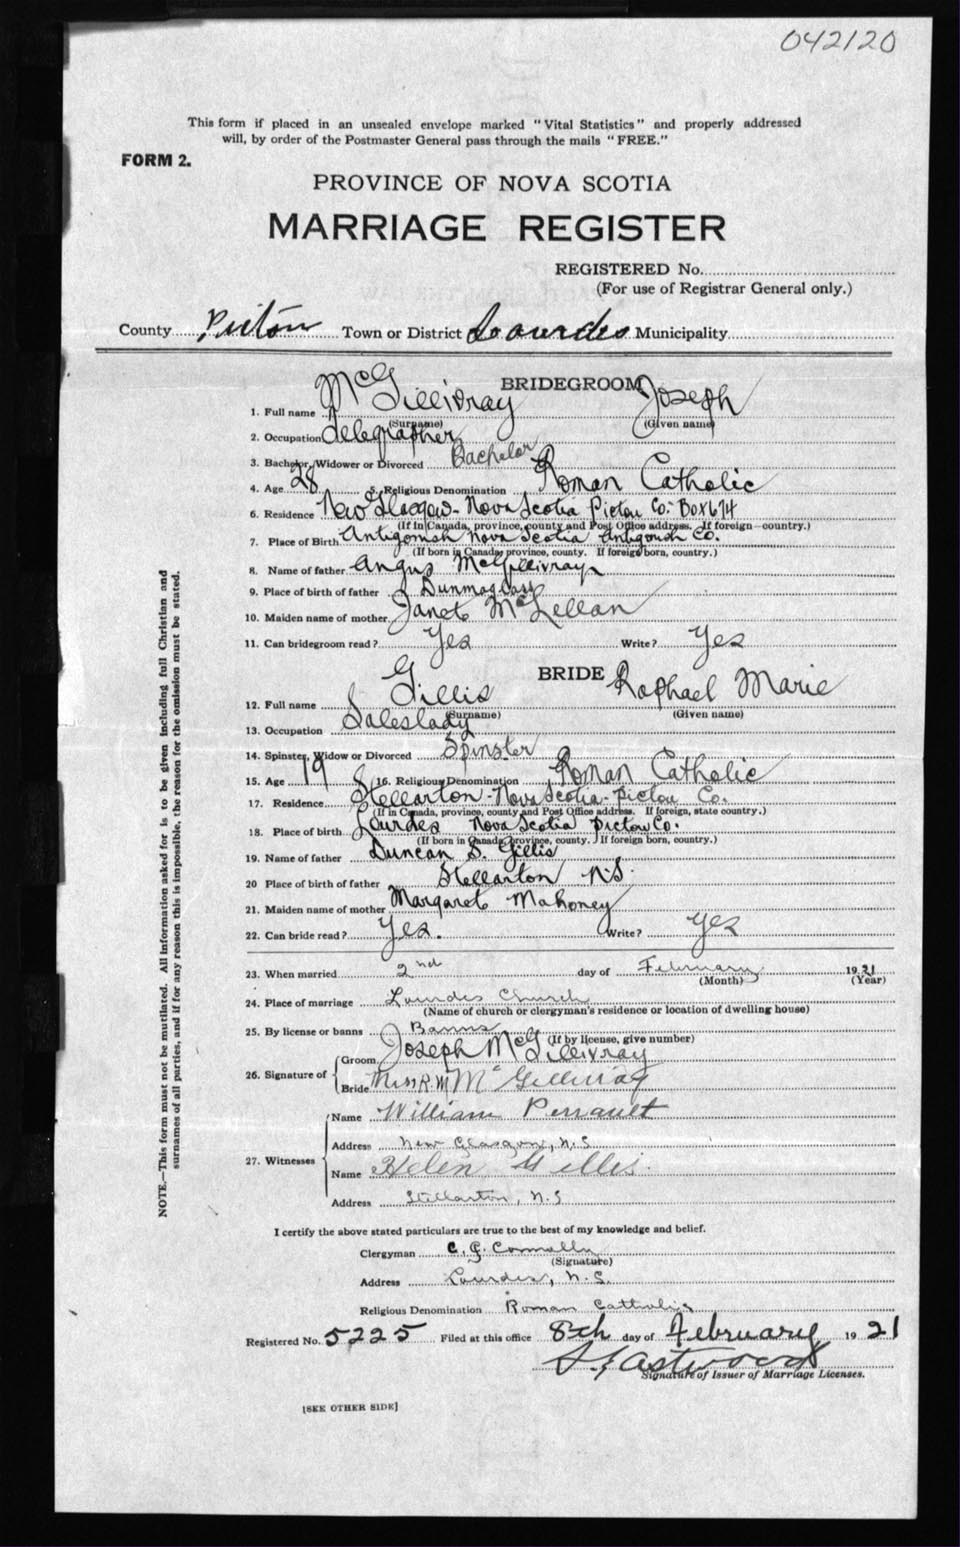 042120
This form if placed in an unsealed envelope marked "Vital Statistics" and properly addressed
will, by order of the Postmaster General pass through the mails "FREE."
FORM 2.
PROVINCE OF NOVA SCOTIA
MARRIAGE REGISTER
REGISTERED No.
(For use of Registrar General only.)
County Pictou Town or District Lourdes Municipality
BRIDEGROOM
1. Full name McGillivray Joseph
(Surname) (Given name)
2. Occupation telegrapher
3. Bachelor, Widower or Divorced Bachelor
4. Age 28 5. Religious Denomination Roman Catholic
6. Residence New Glasgow - Nova Scotia Pictou Co. Box 674
(If in Canada, province, county and Post Office address. If foreign—country.)
7. Place of Birth Antigonish Nova Scotia Antigonish Co.
(If born in Canada, province, county. If foreign born, country.)
8. Name of father Angus McGillivray
9. Place of birth of father Dunmaglass
10. Maiden name of mother Janet McLellan
11. Can bridegroom read? Yes Write? Yes
BRIDE
12. Full name Gillis Raphael Marie
(Surname) (Given name)
13. Occupation Saleslady
14. Spinster, Widow or Divorced Spinster
15. Age 19 16. Religious Denomination Roman Catholic
17. Residence Stellarton - Nova Scotia - Pictou Co.
(If in Canada, province, county and Post Office address. If foreign, state country.)
18. Place of birth Lourdes Nova Scotia Pictou Co.
(If born in Canada, province, county. If foreign born, country.)
19. Name of father Duncan S. Gillis
20 Place of birth of father Stellarton N.S.
21. Maiden name of mother Margaret Mahoney
22. Can bride read? Yes. Write? Yes
23. When married 2nd day of February 1921
(Month) (Year)
24. Place of marriage Lourdes Church
(Name of church or clergyman's residence or location of dwelling house)
25. By license or banns Banns
(If by license, give number)
26. Signature of
Groom Joseph McGillivray
Bride Miss R. M McGillivray
27. Witnesses
Name William Perrault
Address New Glasgow, N.S
Name Helen Gillis.
Address Stellarton, N.S
I certify the above stated particulars are true to the best of my knowledge and belief.
Clergyman C. J. Connolly
(Signature)
Address Lourdes, N.S.
Religious Denomination Roman Catholic
Registered No. 5225 Filed at this office 8th day of February 1921
Eastwood
Signature of Issuer of Marriage Licenses.
[SEE OTHER SIDE]
NOTE.—This form must not be mutilated. All information asked for is to be given including full Christian and
surnames of all parties, and if for any reason this is impossible, the reason for the omission must be stated.